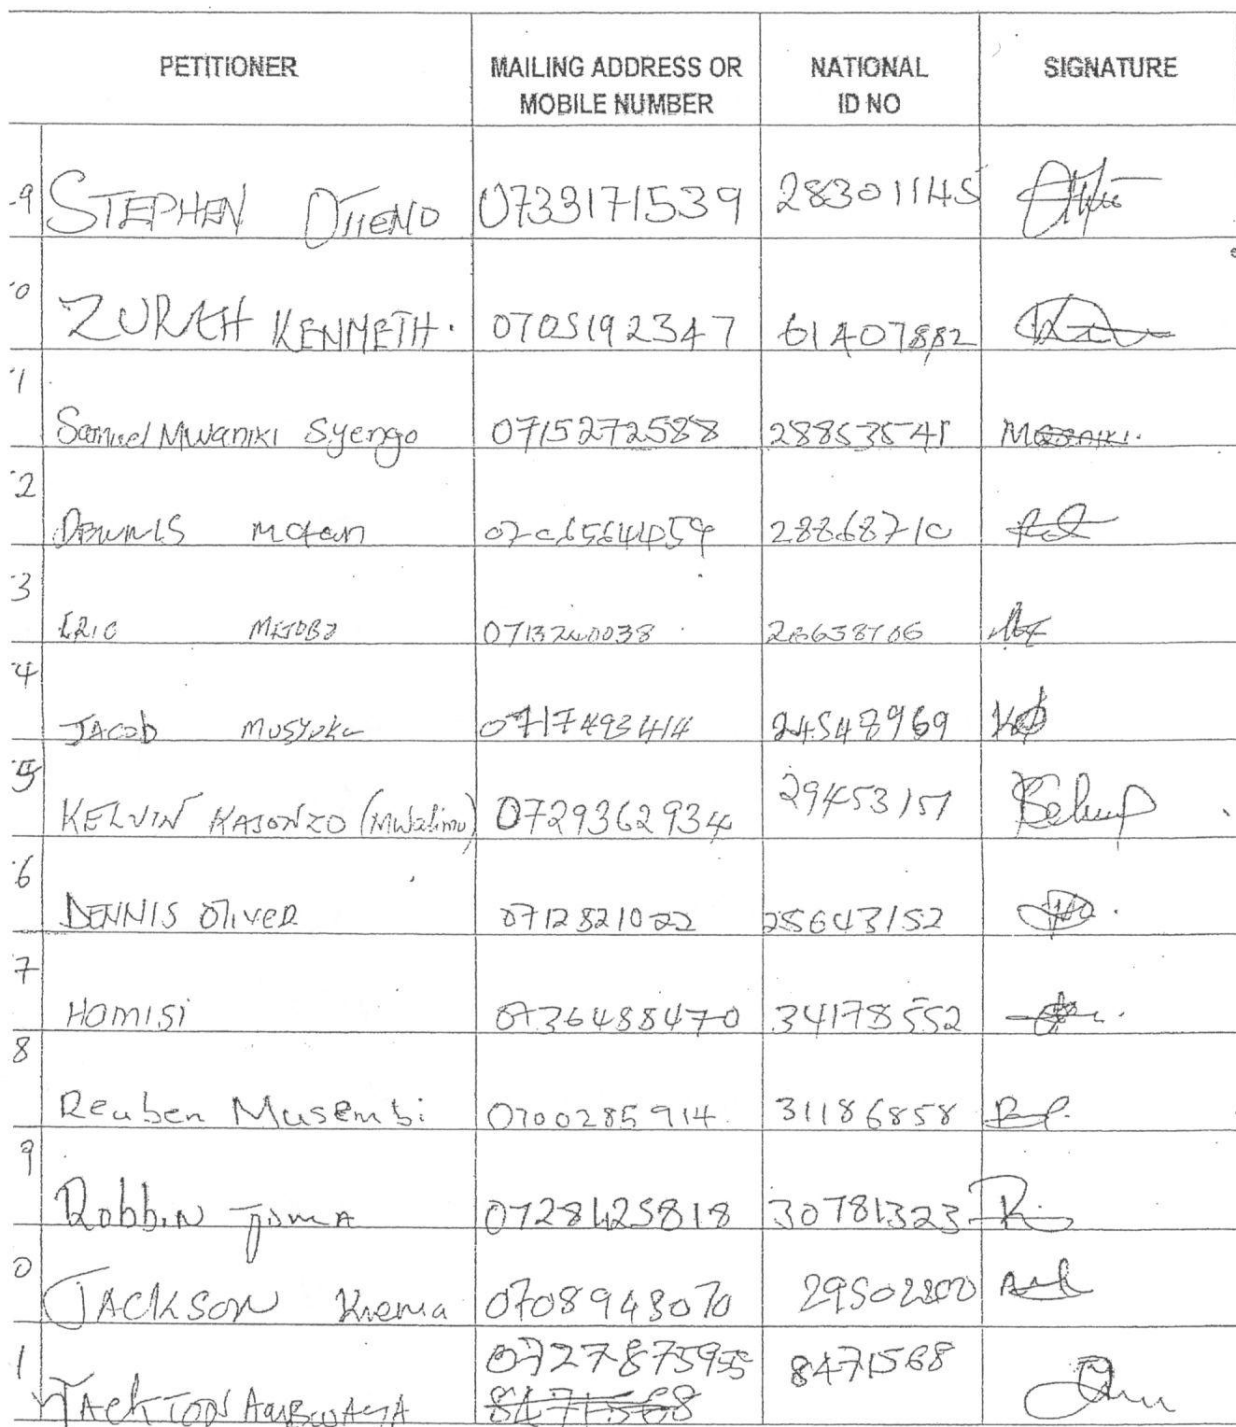 PETITIONER MAILING ADDRESS OR MOBILE NUMBER NATIONAL ID NO SIGNATURE
9 STEPHEN OTIENO 0733171539 28301145
0 ZURAH KENMETH. 0705192347 61407882
1 Samuel Mwaniki Syengo 0715272588 28853541
2 DENNIS 28868710
3 ERIC 0713240038
4 JACOB MUSYOKA 0717493414 24548969
5 KELVIN KASONZO (Mwalimu) 0729362934 29453151
6 DENNIS OLIVER 0712821022 25643152
7 HOMISI 0736488470 34178552
8 Reuben Musembi 0700285914. 31186858
9 Robbin 0728425818 30781323
0 JACKSON 0708943070 29502800
1 JACKTON 0727875955 8471568
8471568